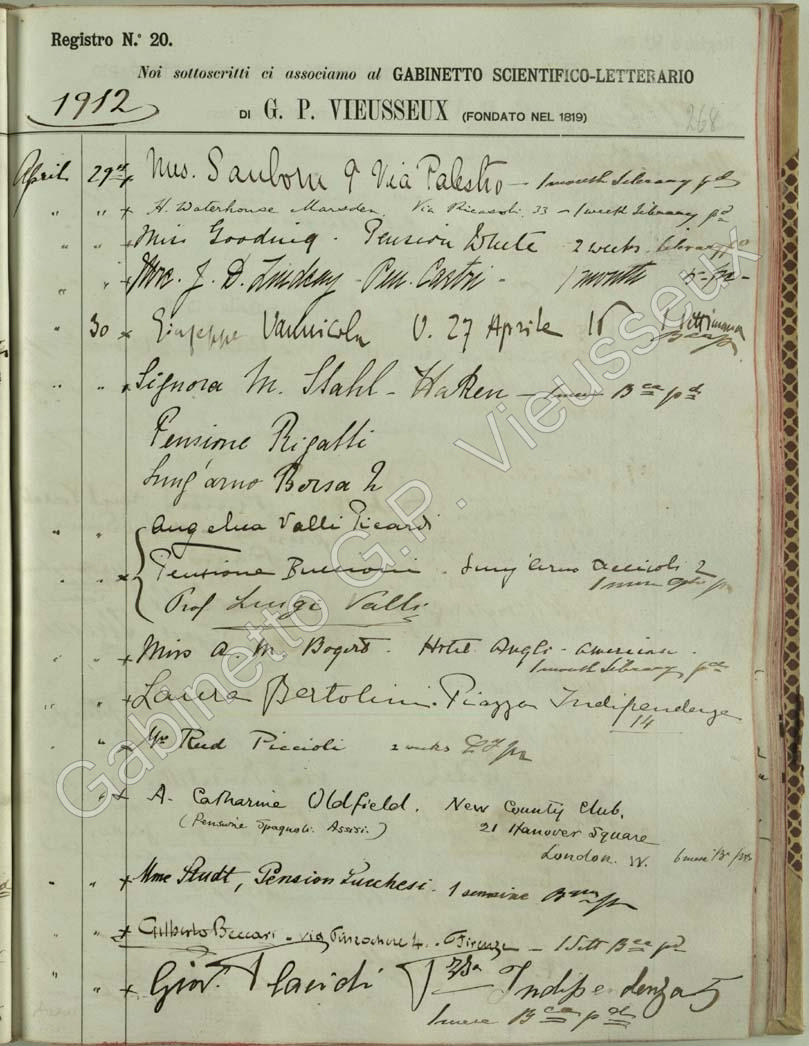 Registro N.º 20.
Noi sottoscritti ci associamo al GABINETTO SCIENTIFICO-LETTERARIO
1912
DI G. P. VIEUSSEUX (FONDATO NEL 1819)
268
April 29 Mrs. Sanborn 9 Via Palestro - 1 month Library pd
" " H. Waterhouse Marsden, Via Ricasoli, 33 - 1 week Library pd
" " Miss Gooding. Pension White 2 weeks library pd
" " Mrs. J. D. Lindsay - Pen. Castri - 1 month
" 30 Giuseppe Vannicola V. 27 Aprile 16 1 Settimana
" " Signora M. Stahl-Haken - 1 mese Bca pd
Pensione Rigatti
Lung'arno Borsa 2
" " Angelica Valli Picardi
" " Pensione - Lung'arno Acciaioli 2
1 mese
Prof Luigi Valli
" " Miss A. M. Bogert. Hotel Anglo-American.
1 month Library pd
" " Laura Bertolini. Piazza Indipendenza
14
" " Rud Piccioli 2 weeks
" " A. Catharine Oldfield. New County Club,
(Pensione Spagnoli. Assisi.) 21 Hanover Square
London. W. 6 mesi
" " Mme Studt, Pension Lucchesi. 1 semaine
" " Gilberto Beccari - via Pinzochere 4. - Firenze - 1 Sett Bca pd
" " Giov. Placidi Pzza Indipendenza 5
1 mese Bca pd
Gabinetto G.P. Vieusseux